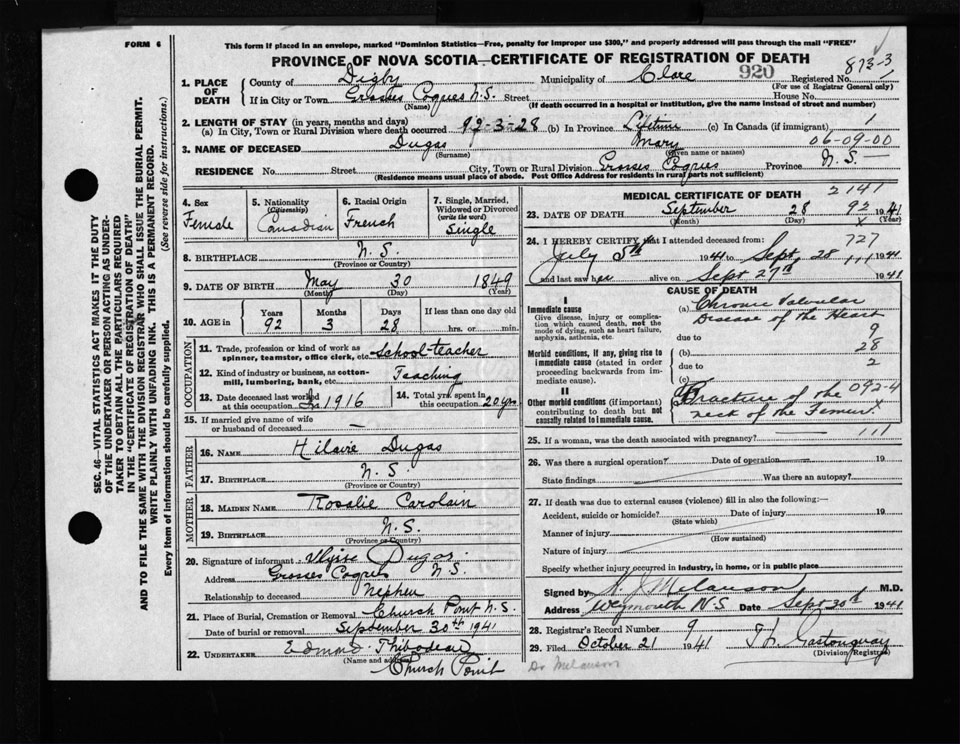 FORM 6
This form if placed in an envelope, marked "Dominion Statistics—Free, penalty for improper use $300," and properly addressed will pass through the mail "FREE"
PROVINCE OF NOVA SCOTIA—CERTIFICATE OF REGISTRATION OF DEATH
920
873-3
1. PLACE OF DEATH
County of Digby Municipality of Clare Registered No.
(For use of Registrar General only)
If in City or Town Grosses Coques N.S. Street House No.
(Name) (If death occurred in a hospital or institution, give the name instead of street and number)
2. LENGTH OF STAY (in years, months and days)
(a) In City, Town or Rural Division where death occurred 92-3-28 (b) In Province Lifetime (c) In Canada (if immigrant) 1
06-09-00
3. NAME OF DECEASED Dugas Mary
(Surname) (Given name or names)
RESIDENCE No. Street City, Town or Rural Division Grosses Coques Province N.S.
(Residence means usual place of abode. Post Office Address for residents in rural parts not sufficient)
4. Sex Female
5. Nationality (Citizenship) Canadian
6. Racial Origin French
7. Single, Married, Widowed or Divorced (write the word) Single
8. BIRTHPLACE N.S.
(Province or Country)
9. DATE OF BIRTH May 30 1849
(Month) (Day) (Year)
10. AGE in Years Months Days If less than one day old
92 3 28 hrs. or min.
OCCUPATION
11. Trade, profession or kind of work as spinner, teamster, office clerk, etc. School-teacher
12. Kind of industry or business, as cotton-mill, lumbering, bank, etc. Teaching
13. Date deceased last worked at this occupation In 1916
14. Total yrs. spent in this occupation 20 yrs
15. If married give name of wife or husband of deceased —
FATHER
16. NAME Hilaire Dugas
17. BIRTHPLACE N.S.
(Province or Country)
MOTHER
18. MAIDEN NAME Rosalie Carolain
19. BIRTHPLACE N.S.
(Province or Country)
20. Signature of informant Ulysse Dugas
Address Grosses Coques N.S.
Relationship to deceased Nephew
21. Place of Burial, Cremation or Removal Church Point N.S.
Date of burial or removal September 30th 1941
22. UNDERTAKER Edmund Thibodeau
(Name and address)
Church Point
MEDICAL CERTIFICATE OF DEATH
2141
23. DATE OF DEATH September 28 92 1941
(Month) (Day) (Year)
24. I HEREBY CERTIFY that I attended deceased from: 727
July 5th 1941 to Sept. 28 1941
and last saw her alive on Sept 27th 1941
CAUSE OF DEATH
I
Immediate cause
Give disease, injury or complication which caused death, not the mode of dying, such as heart failure, asphyxia, asthenia, etc.
(a) Chronic Valvular Disease of the Heart
due to 9
Morbid conditions, if any, giving rise to immediate cause (stated in order proceeding backwards from immediate cause).
(b) 28
due to 2
(c)
II
Other morbid conditions (if important) contributing to death but not causally related to immediate cause.
Fracture of the neck of the Femur
092-4
25. If a woman, was the death associated with pregnancy? 111
26. Was there a surgical operation? Date of operation 19
State findings Was there an autopsy?
27. If death was due to external causes (violence) fill in also the following:—
Accident, suicide or homicide? Date of injury 19
(State which)
Manner of injury
(How sustained)
Nature of injury
Specify whether injury occurred in Industry, in home, or in public place
Signed by Melanson M.D.
Address Weymouth N.S Date Sept 30th 1941
28. Registrar's Record Number 9
29. Filed October 21 1941
(Division Registrar)
Dr Melanson
SEC. 46—VITAL STATISTICS ACT MAKES IT THE DUTY
OF THE UNDERTAKER OR PERSON ACTING AS UNDER-
TAKER TO OBTAIN ALL THE PARTICULARS REQUIRED
IN THE "CERTIFICATE OF REGISTRATION OF DEATH"
AND TO FILE THE SAME WITH THE DIVISION REGISTRAR WHO SHALL ISSUE THE BURIAL PERMIT.
WRITE PLAINLY WITH UNFADING INK. THIS IS A PERMANENT RECORD.
Every item of information should be carefully supplied. (See reverse side for instructions.)